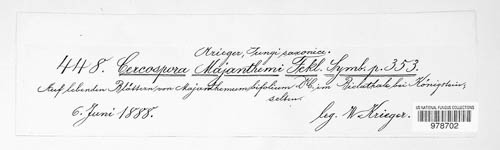 Krieger, Fungi saxonici.
448. Cercospora Majanthemi Fckl. Symb. p. 353.
Auf lebenden Blättern von Majanthemum bifolium DC, im Bielathale bei Königstein,
selten.
6. Juni 1888.
leg. W Krieger.
US NATIONAL FUNGUS COLLECTIONS
978702